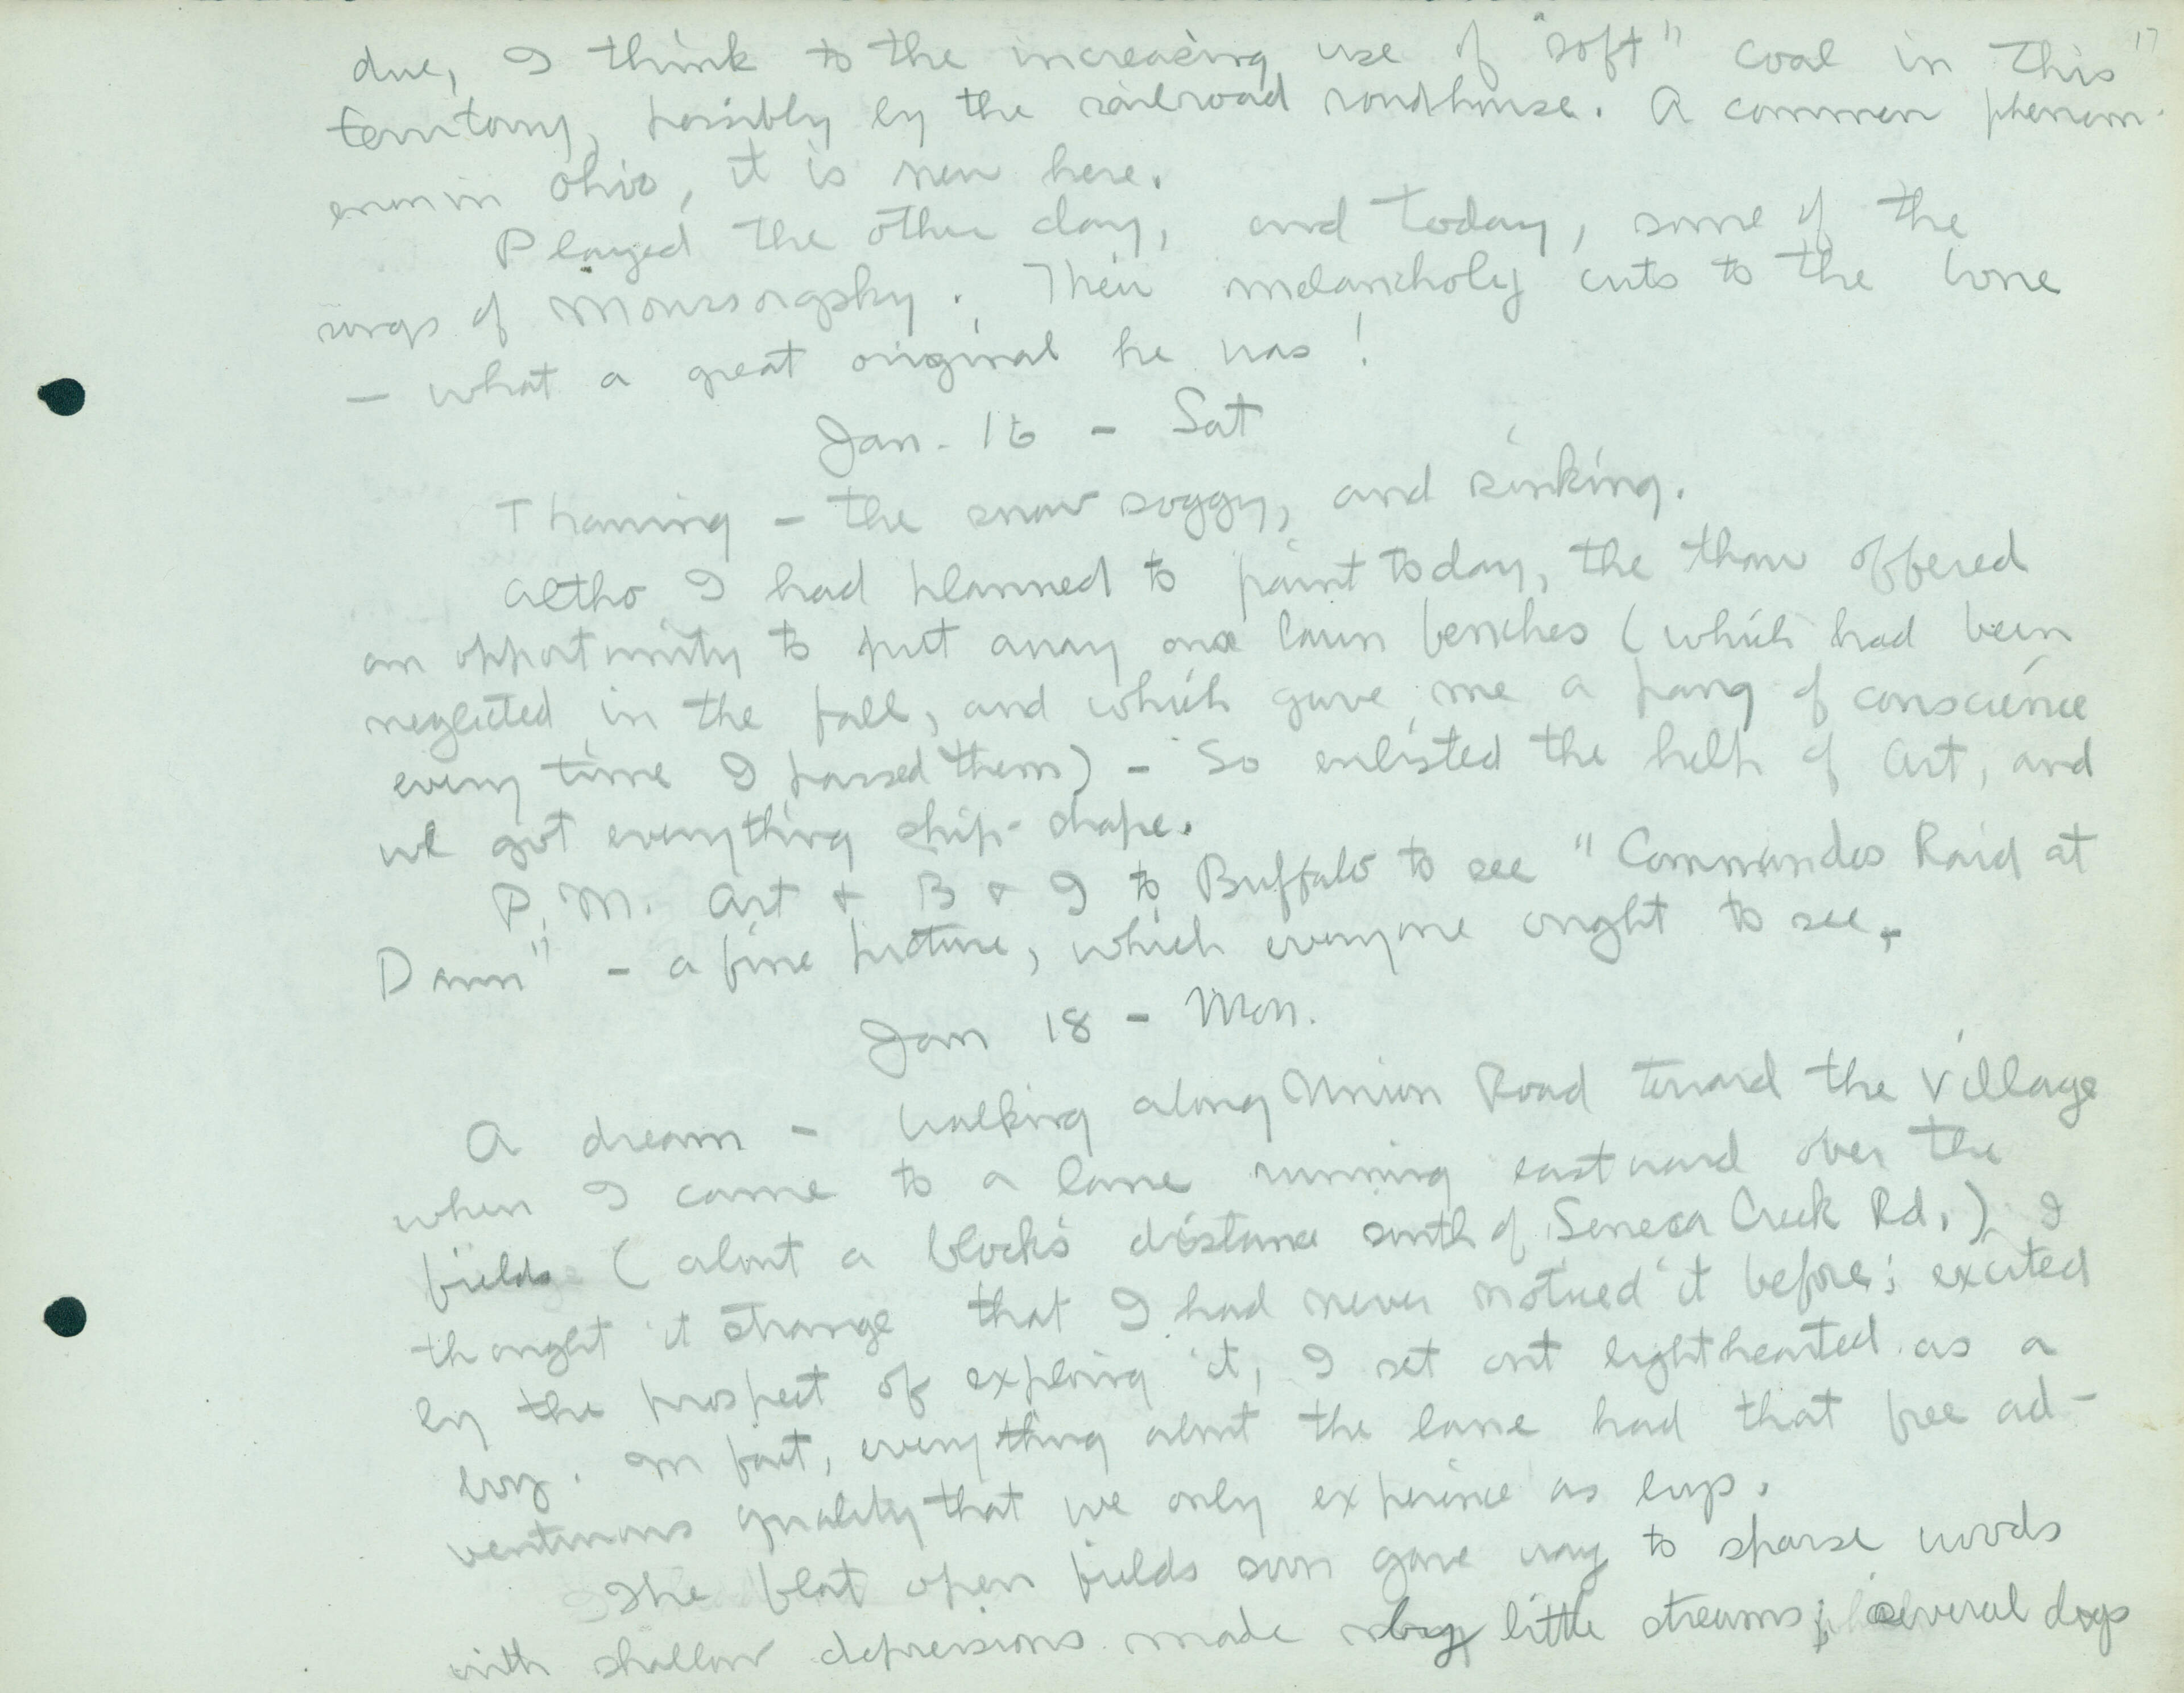 17
due, I think to the increasing use of "soft" coal in this
territory, possibly by the railroad roundhouse. A common phenom-
enon in Ohio, it is new here.
Played the other day, and today, some of the
songs of Moussorgsky. Their melancholy cuts to the bone
— what a great original he was!
Jan. 16 - Sat
Thawing - the snow soggy, and sinking.
Altho I had planned to paint today, the thaw offered
an opportunity to put away our lawn benches (which had been
neglected in the fall, and which gave me a pang of conscience
every time I passed them) - So enlisted the help of Art, and
we got everything ship-shape.
P.M. Art + B + I to Buffalo to see "Commandos Raid at
Dawn" - a fine picture, which everyone ought to see.
Jan 18 - Mon.
A dream - walking along Union Road toward the Village
when I came to a lane running eastward over the
fields (about a block's distance south of Seneca Creek Rd.) I
thought it strange that I had never noticed it before; excited
by the prospect of exploring it, I set out lighthearted as a
boy. In fact, everything about the lane had that free ad-
venturous quality that we only experience as boys.
The flat open fields soon gave way to sparse woods
with shallow depressions made by little streams; several dogs